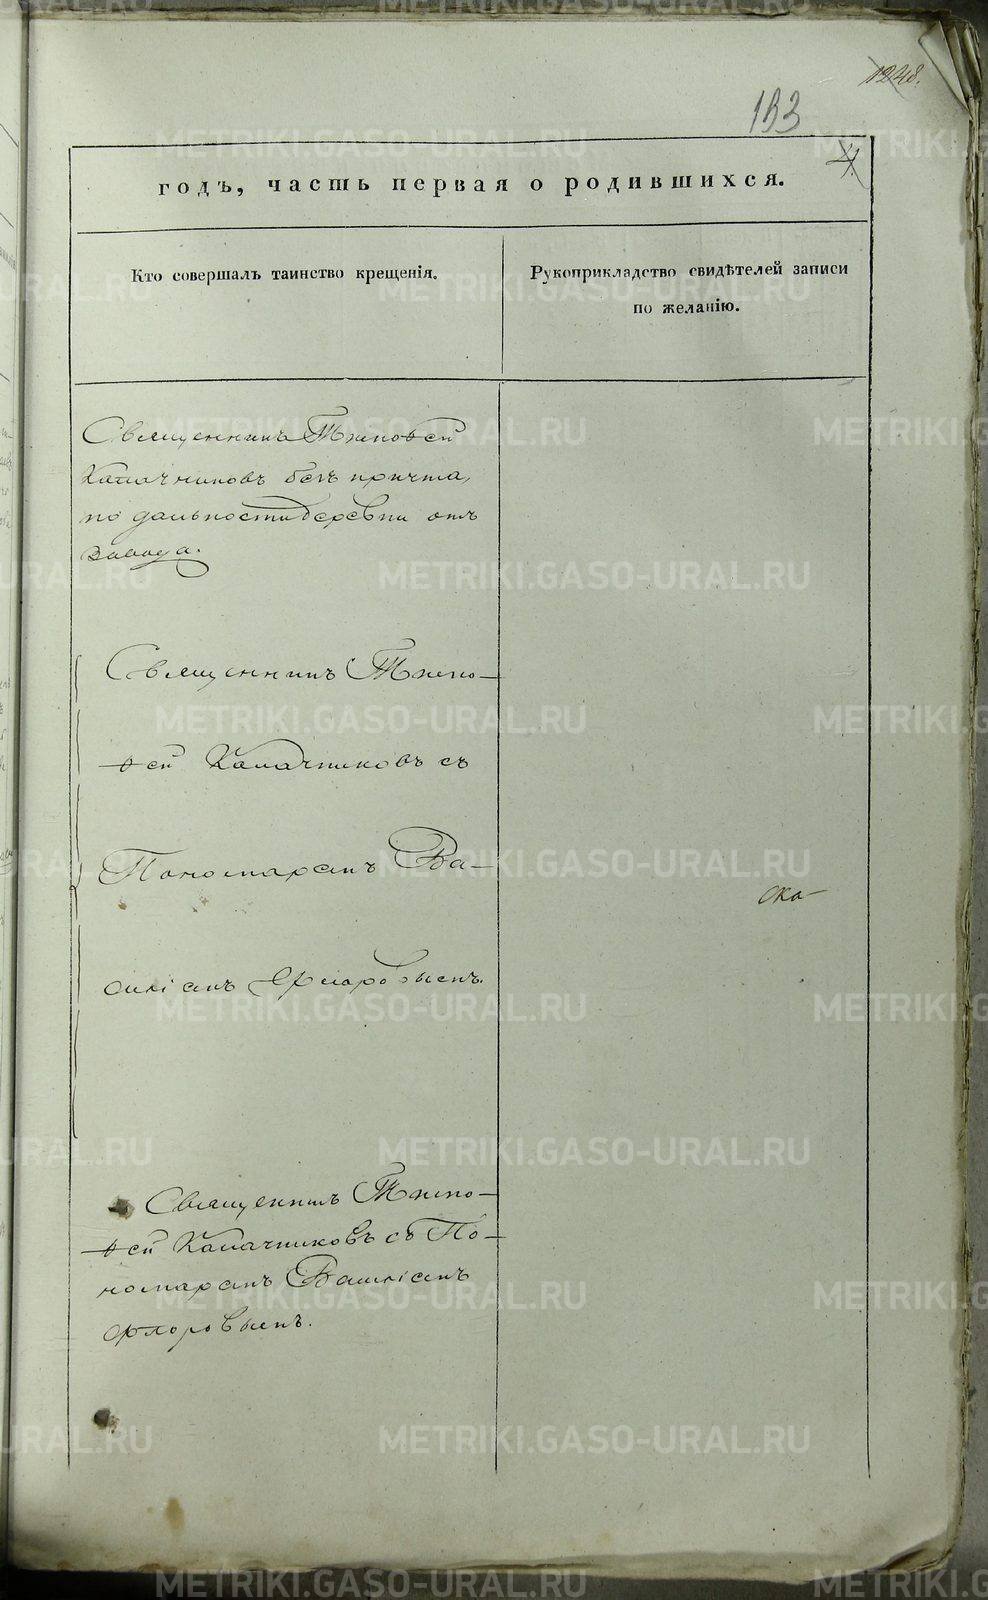 1248.
193
4.
годъ, часть первая о родившихся.
Кто совершалъ таинство крещенія.
Рукоприкладство свидѣтелей записи
по желанію.
Священникъ Тимоѳей
Калачниковъ безъ причта,
по дальности деревни отъ
завода.
Священникъ Тимо-
ѳей Калачниковъ съ
Пономаремъ Ва-
ско-
силіемъ Флоровымъ.
Священникъ Тимо-
ѳей Калачниковъ съ По-
номаремъ Василіемъ
Флоровымъ.
METRIKI.GASO-URAL.RU